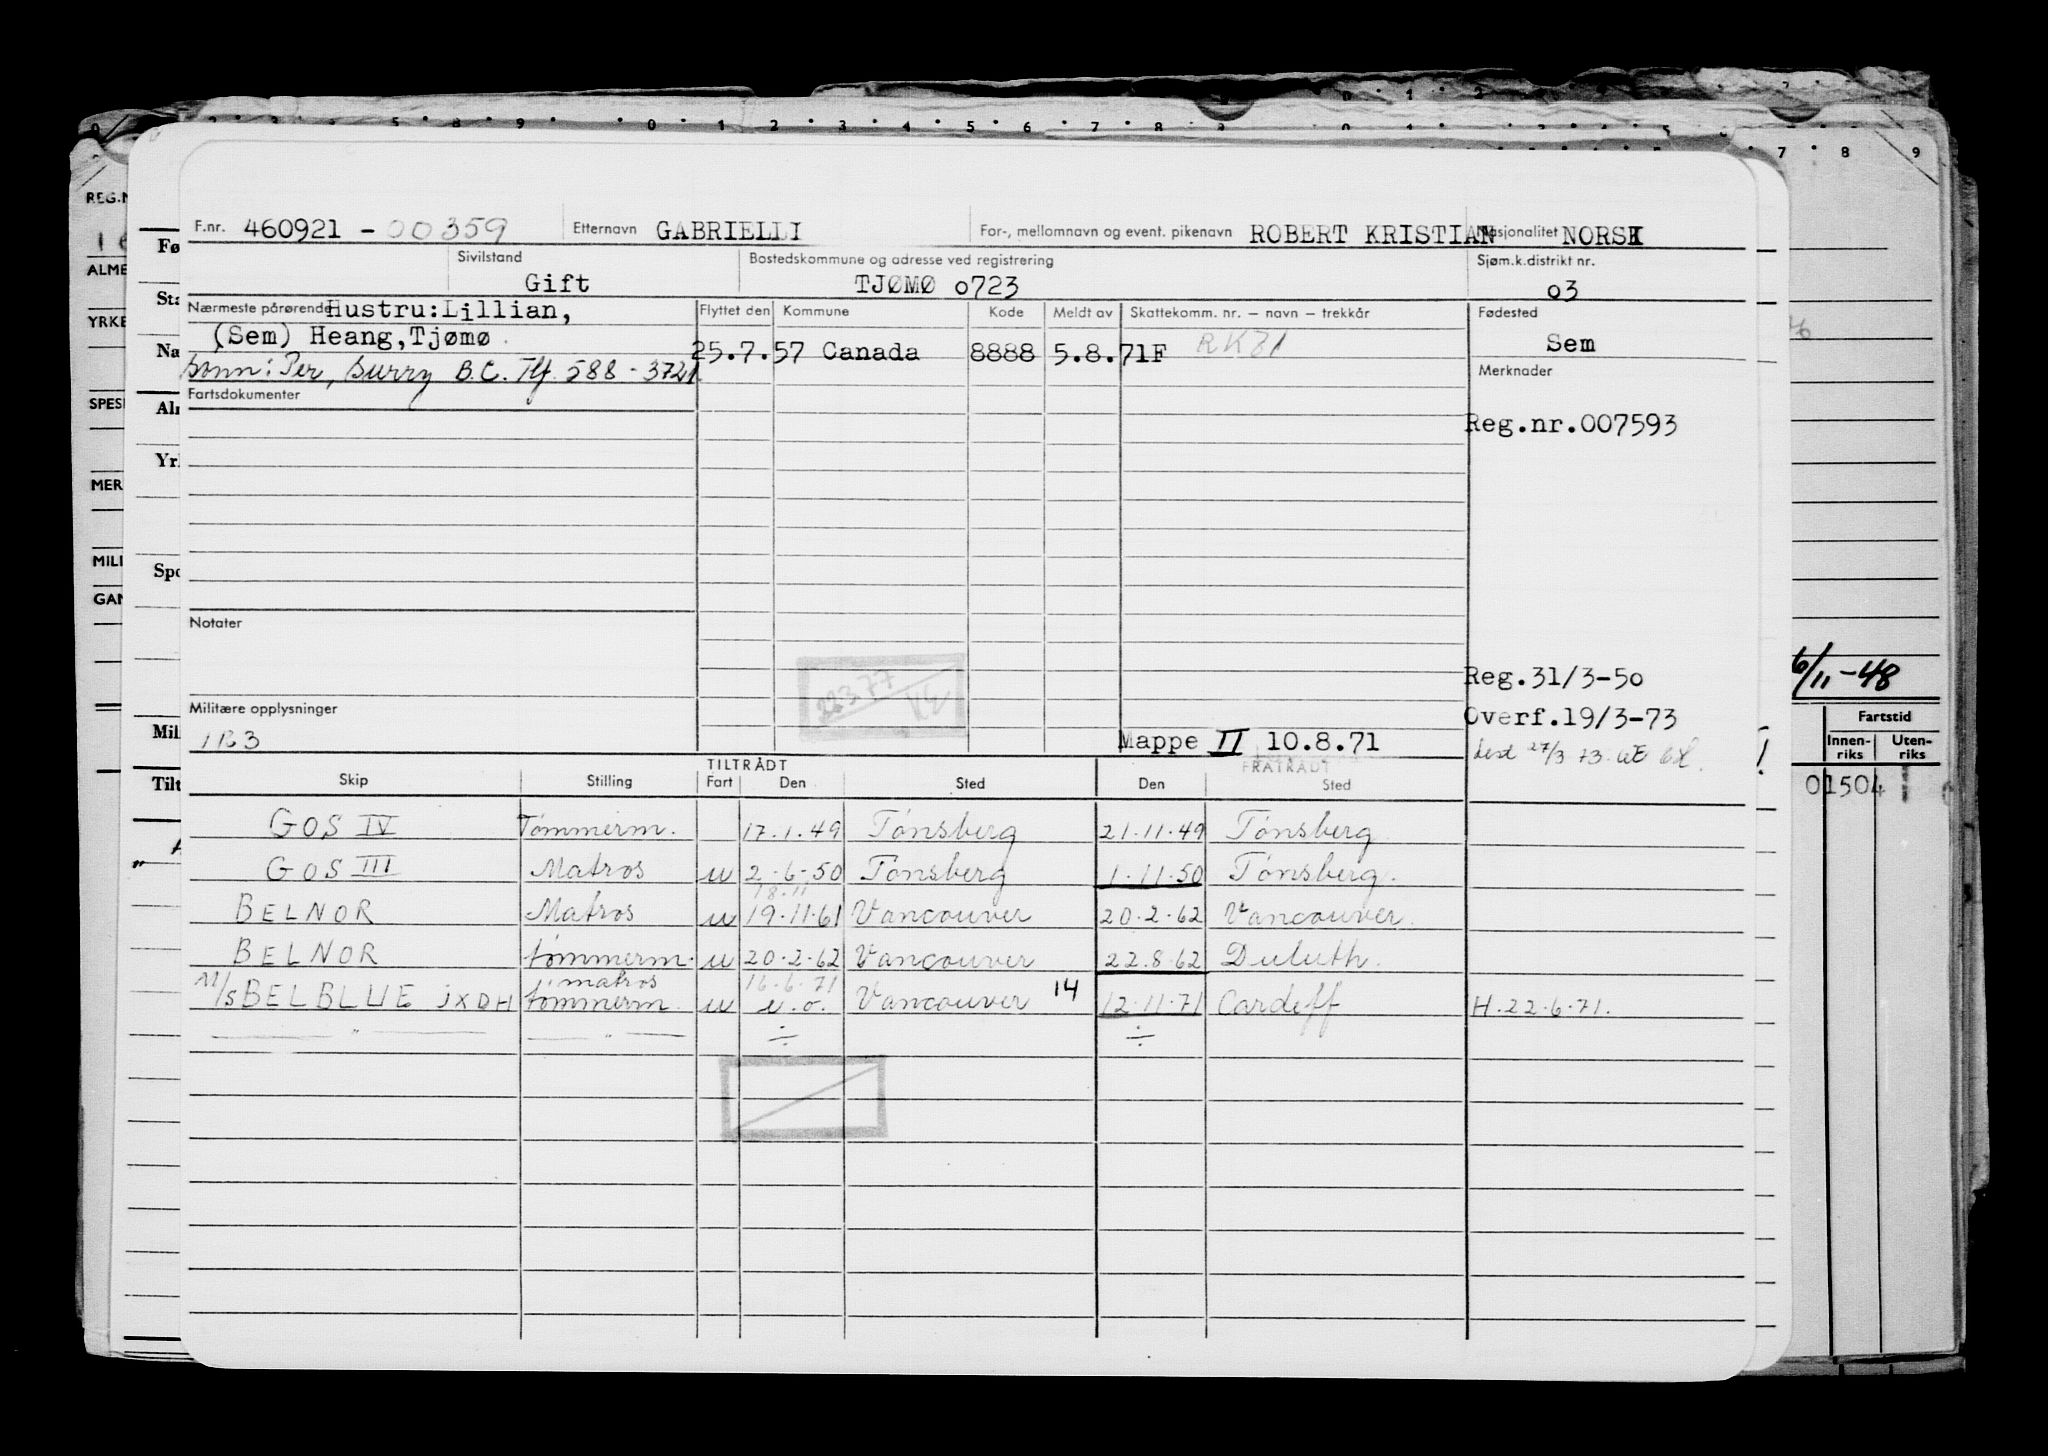 F.nr. 460921 - 00359 Etternavn GABRIELLI For-, mellomnavn og event. pikenavn ROBERT KRISTIAN Nasjonalitet NORSK
Sivilstand Gift Bostedskommune og adresse ved registrering TJØMØ o723 Sjøm.k.distrikt nr. o3
Nærmeste pårørende Hustru:Lillian, Flyttet den Kommune Kode Meldt av Skattekomm. nr. – navn – trekkår Fødested
(Sem) Heang,Tjømø. 25.7.57 Canada 8888 5.8.71F RK71 Sem
Sønn: Per, Surry B.C. Tlf. 588-3721 Merknader
Fartsdokumenter
Reg.nr.007593
Notater
22377
Reg.31/3-5o
Militære opplysninger Overf.19/3-73
1B3 Mappe II 10.8.71 27/3 73
TILTRÅDT FRATRÅDT
Skip Stilling Fart Den Sted Den Sted
GOS IV Tømmerm. 17.1.49 Tønsberg 21.11.49 Tønsberg
GOS III Matros u 2-6-50 Tønsberg 1.11.50 Tønsberg.
18.11
BELNOR Matros u 19.11.61 Vancouver 20.2.62 Vancouver.
BELNOR tømmerm. u 20.2.62 Vancouver 22.8.62 Duluth.
matros 16.6.71
M/S BELBLUE JXDH tømmerm u e.o. Vancouver 14 12.11.71 Cardeff H.22.6.71.
" " ÷ ÷
REG.N
ALME
YRKE
SPES
MER
MILI
GAN
Fø
Sta
Na
Aln
Yrl
Spo
Mil
Tilt
6/11-48
Fartstid
Innen-riks Uten-riks
01504